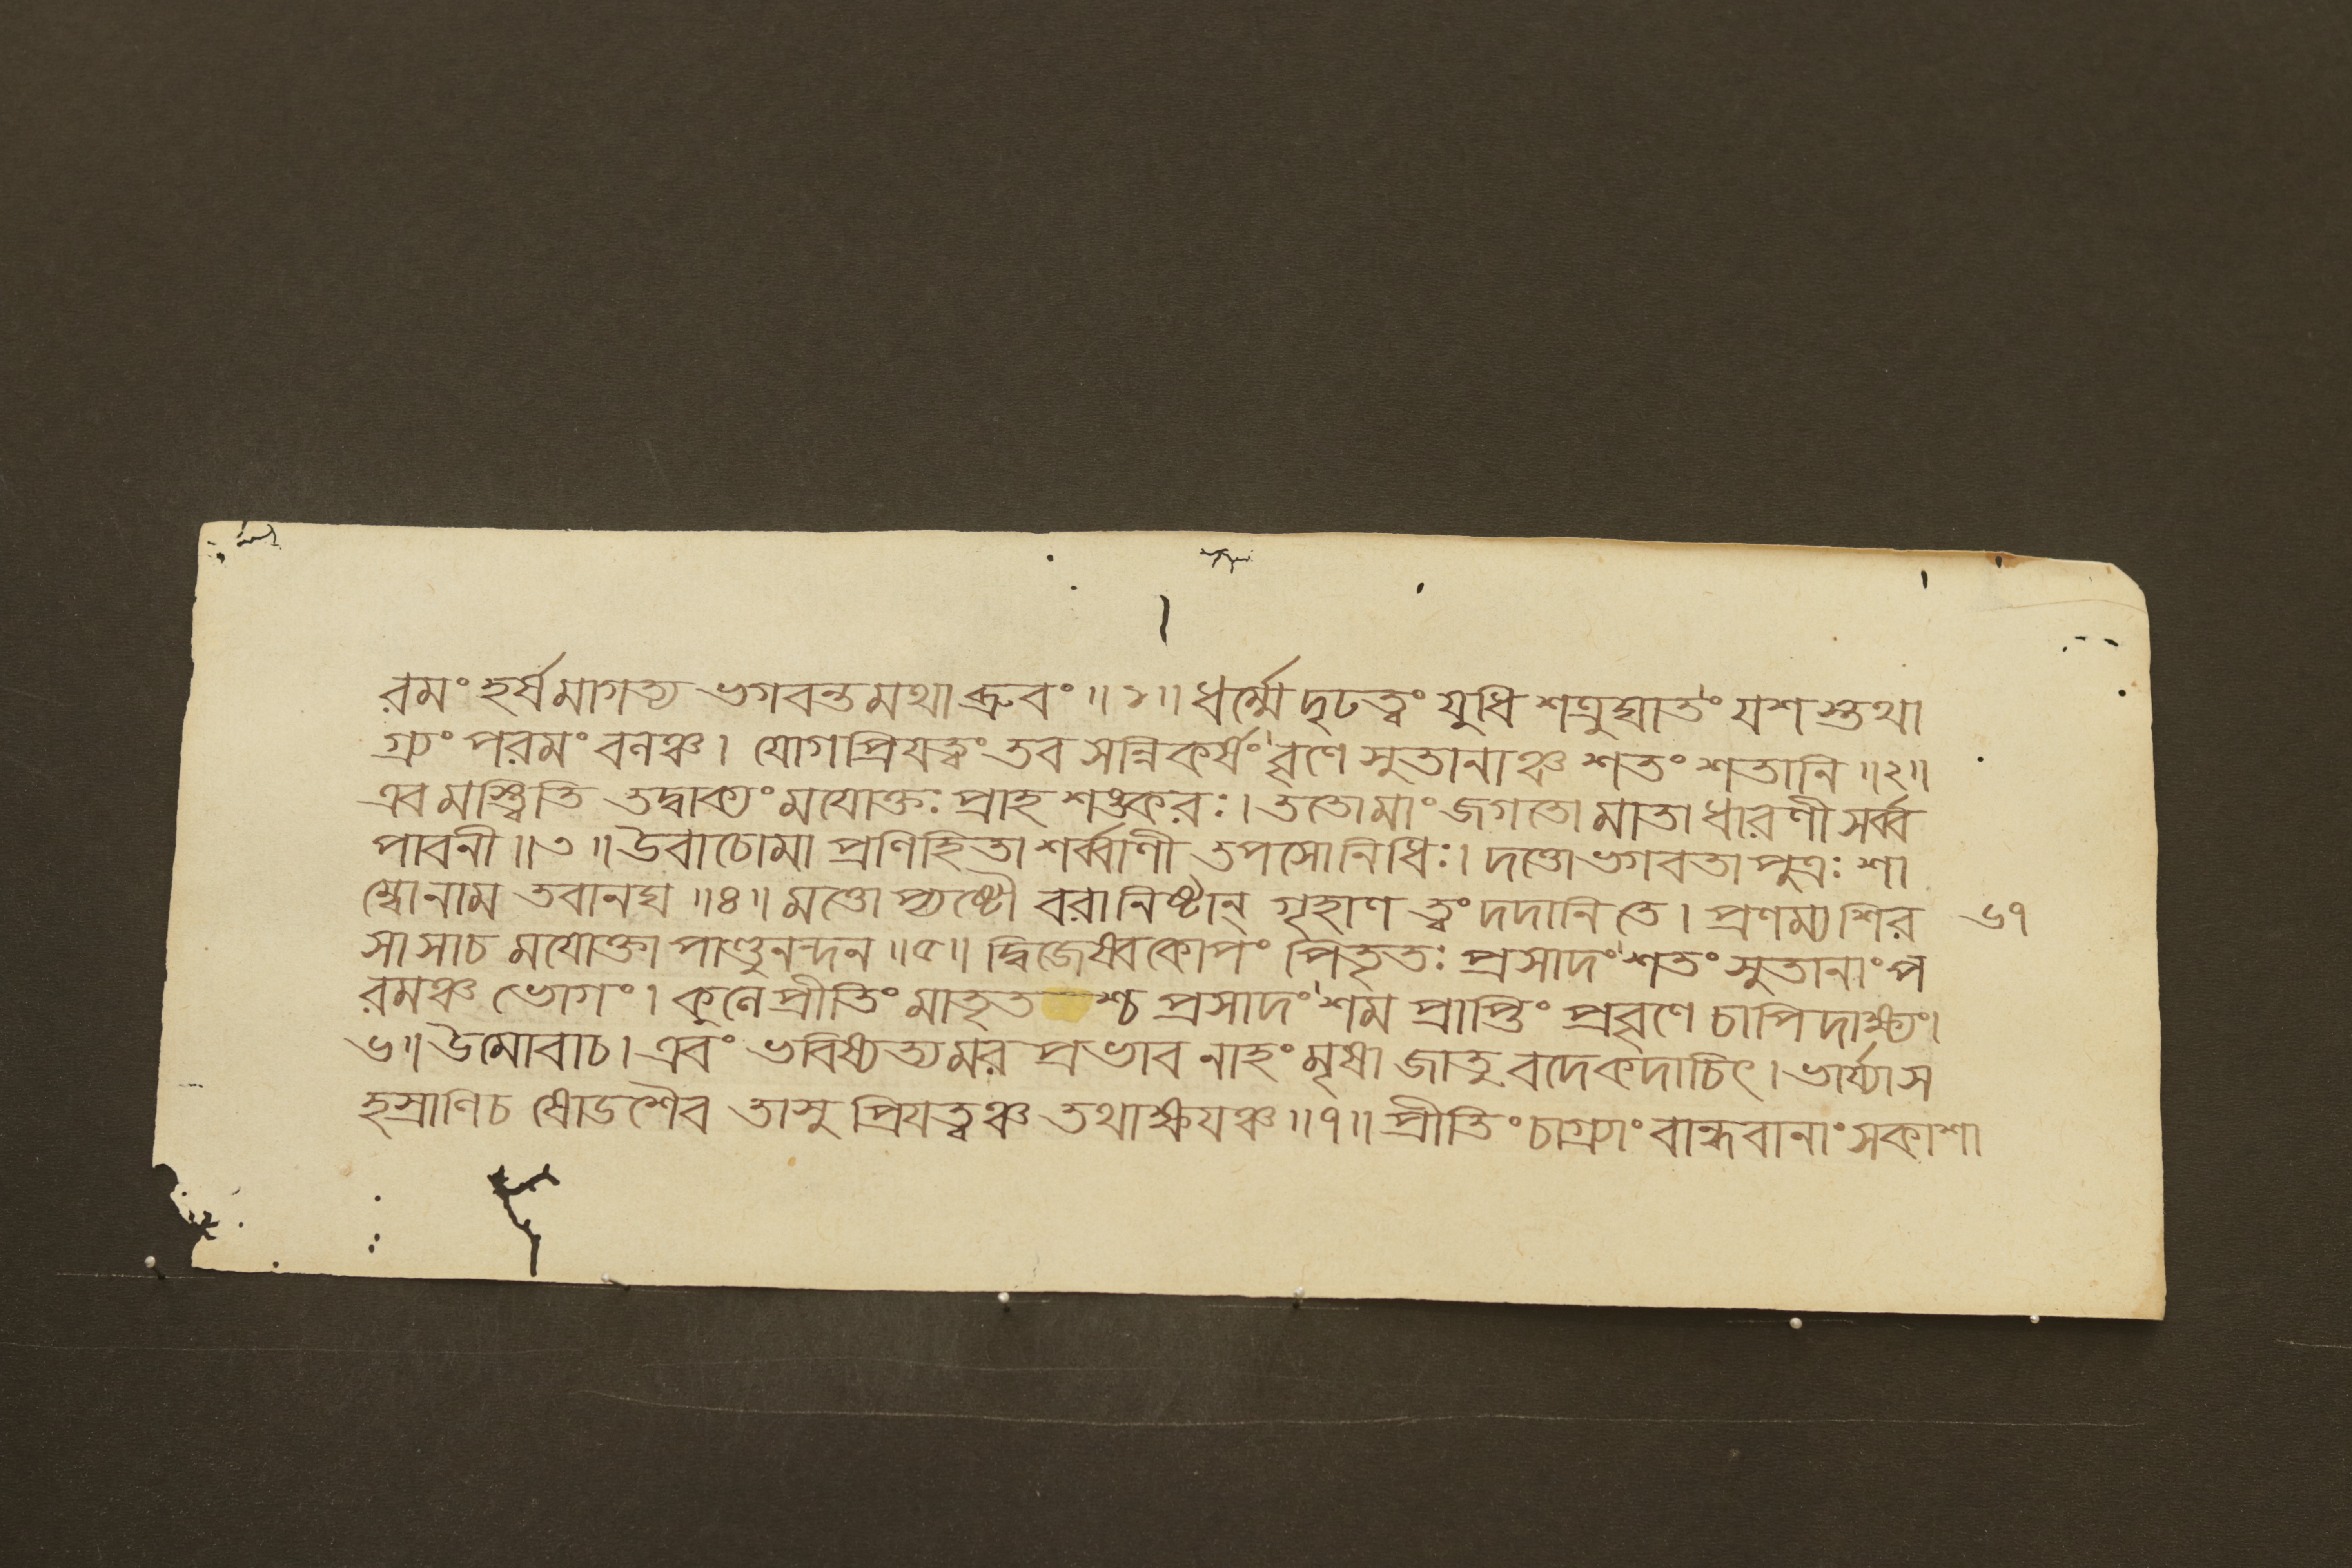 রমং হর্ষমাগত্য ভগবন্তমথা ব্রুবং ॥১॥ ধর্ম্মে দৃঢত্বং যুধি শত্রুঘাতং যশস্তথা
গ্র্যং পরমং বনঞ্চ। যোগপ্রিযত্বং তব সন্নিকর্ষং বৃণে সুতানাঞ্চ শতং শতানি ॥২॥
এবমস্ত্বিতি তদ্বাক্যং মযোক্তঃ প্রাহ শঙ্করঃ। ততো মাং জগতো মাতা ধারণী সর্ব্ব
পাবনী ॥৩॥ উবাচোমা প্রণিহিতা শর্ব্বাণী তপসো নিধিঃ। দত্তো ভগবতা পুত্রঃ শা
ম্বো নাম তবানঘ ॥৪॥ মত্তোপ্যষ্টৌ বরানিষ্টান্ গৃহাণ ত্বং দদানি তে। প্রণম্য শির ৬৭
সা সা চ মযোক্তা পাণ্ডুনন্দন ॥৫॥ দ্বিজেষ্বকোপং পিতৃতঃ প্রসাদং শতং সুতানাং প
রমঞ্চ ভোগং। কুলে প্রীতিং মাতৃত শ্চ প্রসাদং শম প্রাপ্তিং প্রবৃণে চাপি দাক্ষ্যং।
৬॥ উমোবাচ। এবং ভবিষ্যত্যমর প্রভাব নাহং মৃষা জাতু বদে কদাচিৎ। ভার্য্যাস
হস্রাণি চ ষোডশৈব তাসু প্রিযত্বঞ্চ তথাক্ষযঞ্চ ॥৭॥ প্রীতিং চাগ্র্যাং বান্ধবানাং সকাশা